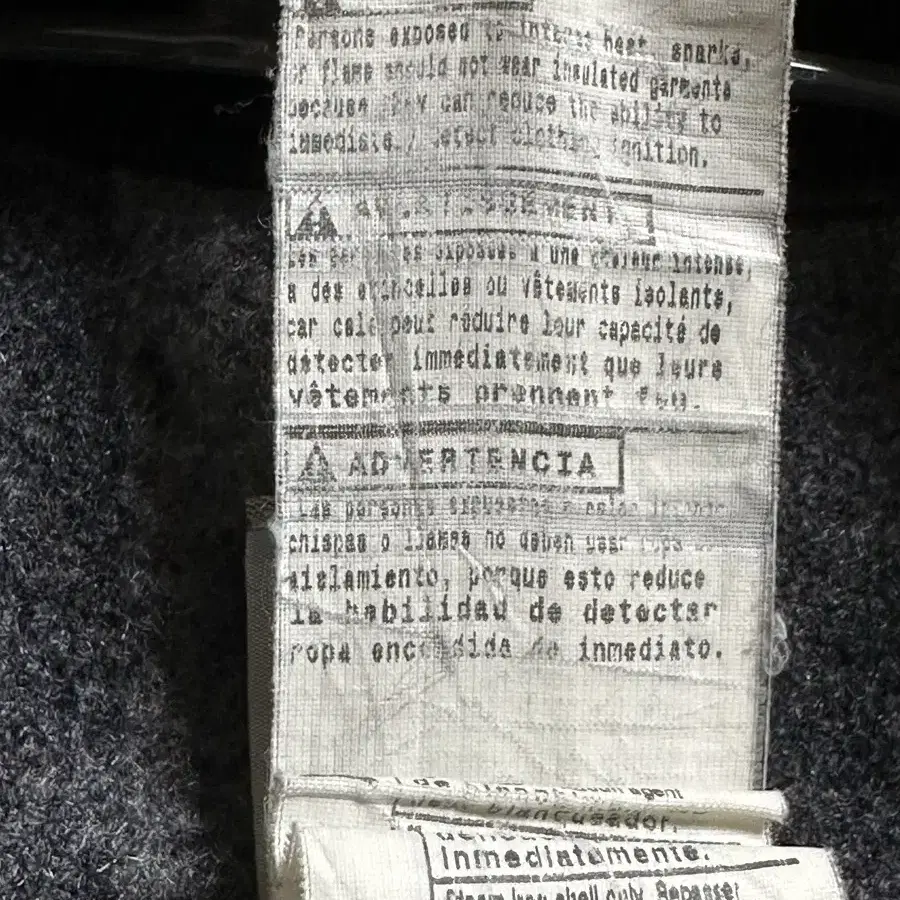 Persons exposed to intense heat, sparks,
or flame should not wear insulated garments
because they can reduce the ability to
immediately detect clothing ignition.
AVERTISSEMENT
Les personnes exposées à une chaleur intense,
à des étincelles ou vêtements isolants,
car cela peut réduire leur capacité de
détecter immédiatement que leurs
vêtements prennent feu.
ADVERTENCIA
Las personas expuestas a calor intenso,
chispas o llamas no deben usar ropa de
aislamiento, porque esto reduce
la habilidad de detectar
ropa encendida de inmediato.
agent
blanqueador.
Inmediatamente.
Steam iron shell only. Repasser